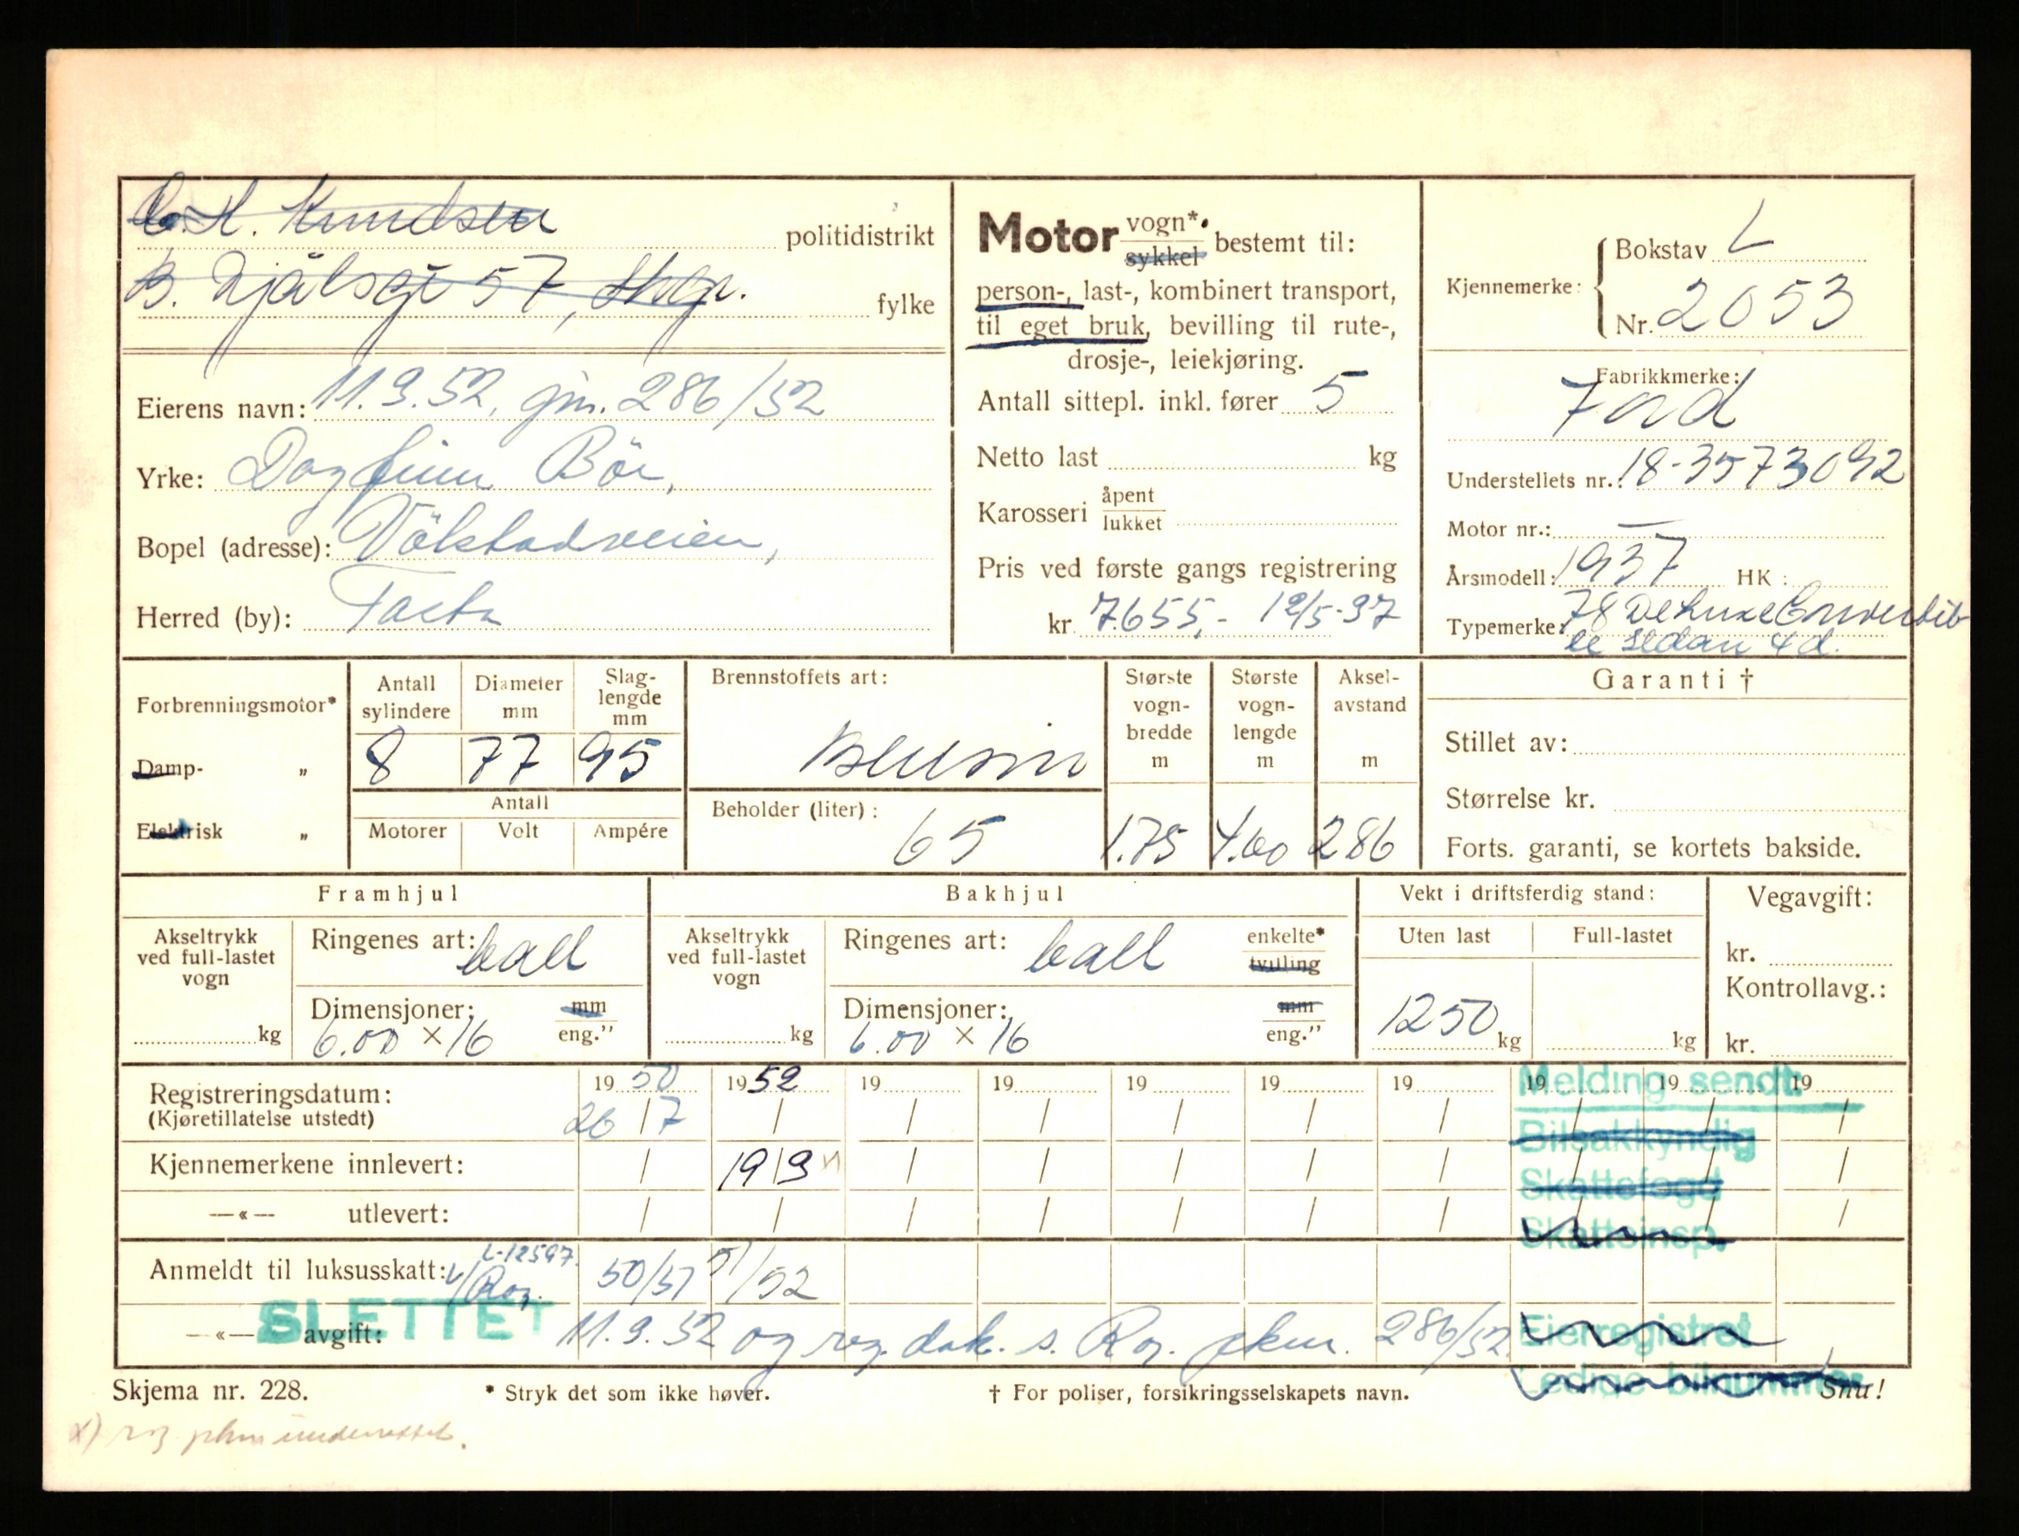 C. H. Knudsen politidistrikt
B. Njålsgt 57, Stvgr. fylke
Eierens navn: 11.9.52. gjn. 286/52
Yrke: Dagfinn Bör,
Bopel (adresse): Völstadveien,
Herred (by): Tasta
Motor vogn* sykkel bestemt til:
person-, last-, kombinert transport,
til eget bruk, bevilling til rute-,
drosje-, leiekjøring.
Antall sittepl. inkl. fører 5
Netto last kg
Karosseri åpent lukket
Pris ved første gangs registrering
kr 7.655,- 12/5-37
Kjennemerke: Bokstav L
Nr. 2053
Fabrikkmerke:
Ford
Understellets nr.: 18-3573092
Motor nr.: —
Årsmodell: 1937 HK:
Typemerke: 78 De Luxe Convertib
le Sedan 4 d.
Forbrenningsmotor*
Damp- „
Elektrisk „
Antall sylindere 8
Diameter mm 77
Slaglengde mm 95
Antall
Motorer Volt Ampére
Brennstoffets art:
Bensin
Beholder (liter): 65
Største vognbredde m 1.75
Største vognlengde m 4.60
Akselavstand m 286
Garanti †
Stillet av:
Størrelse kr.
Forts. garanti, se kortets bakside.
Framhjul
Akseltrykk ved full-lastet vogn kg
Ringenes art: ball
Dimensjoner: mm eng.”
6.00 × 16
Bakhjul
Akseltrykk ved full-lastet vogn kg
Ringenes art: ball enkelte* tvilling
Dimensjoner: mm eng.”
6.00 × 16
Vekt i driftsferdig stand:
Uten last Full-lastet
1250 kg kg
Vegavgift:
kr.
Kontrollavg.:
kr.
Registreringsdatum: 19 50 19 52 19 19 19 19 19 19 19 19
(Kjøretillatelse utstedt) 26/7 / / / / / / / / /
Kjennemerkene innlevert: / 19/9 / / / / / / / /
—«— utlevert: / / / / / / / / / /
Anmeldt til luksusskatt: L-12597. v/Rog. 50/51 51/52
—«— avgift: 11.9.52 og reg. dok. s. Rog. 286/52.
SLETTET
Melding sendt:
Bilsakkyndig
Skattefogd
Skatteinsp.
Eierregistret
Ledige bilnummer
Skjema nr. 228. * Stryk det som ikke høver. † For poliser, forsikringsselskapets navn. Snu!
x) underrettet.